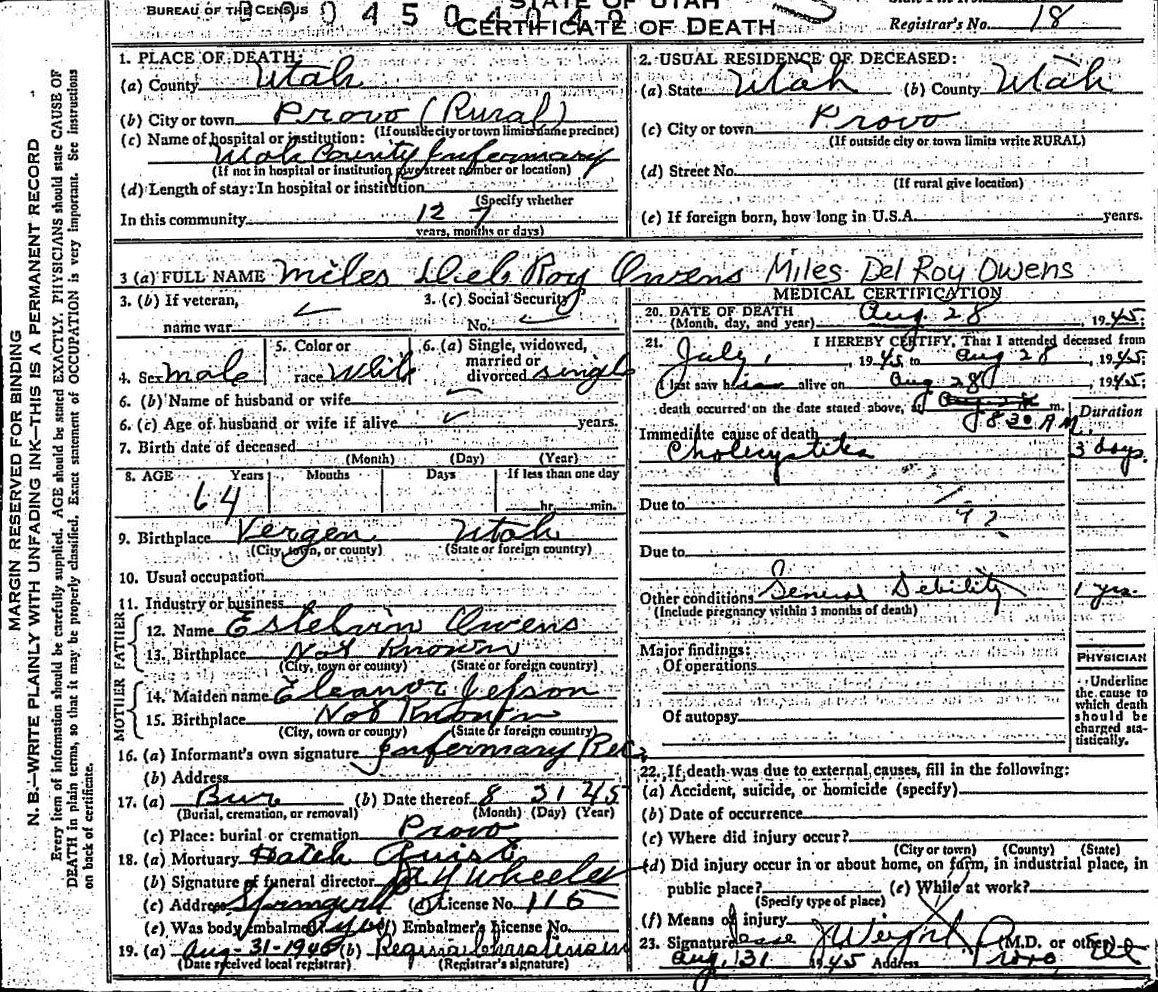 BUREAU OF THE CENSUS
STATE OF UTAH
CERTIFICATE OF DEATH
Registrar's No. 18
MARGIN RESERVED FOR BINDING
N. B.—WRITE PLAINLY WITH UNFADING INK—THIS IS A PERMANENT RECORD
Every item of information should be carefully supplied. AGE should be stated EXACTLY. PHYSICIANS should state CAUSE OF
DEATH in plain terms, so that it may be properly classified. Exact statement of OCCUPATION is very important. See instructions
on back of certificate.
1. PLACE OF DEATH:
(a) County Utah
(b) City or town Provo (Rural)
(If outside city or town limits name precinct)
(c) Name of hospital or institution:
Utah County Infermary
(If not in hospital or institution give street number or location)
(d) Length of stay: In hospital or institution
(Specify whether
In this community 12 7
years, months or days)
2. USUAL RESIDENCE OF DECEASED:
(a) State Utah (b) County Utah
(c) City or town Provo
(If outside city or town limits write RURAL)
(d) Street No.
(If rural give location)
(e) If foreign born, how long in U.S.A. years.
3 (a) FULL NAME Miles Del Roy Owens Miles Del Roy Owens
3. (b) If veteran,
name war
3. (c) Social Security
No.
4. Sex male
5. Color or
race White
6. (a) Single, widowed,
married or
divorced single
6. (b) Name of husband or wife
6. (c) Age of husband or wife if alive years.
7. Birth date of deceased
(Month) (Day) (Year)
8. AGE Years Months Days If less than one day
64 hr. min.
9. Birthplace Vergen Utah
(City, town, or county) (State or foreign country)
10. Usual occupation
11. Industry or business
FATHER
12. Name Estelvin Owens
13. Birthplace Not Known
(City, town or county) (State or foreign country)
MOTHER
14. Maiden name Eleanor Jefson
15. Birthplace Not Known
(City, town or county) (State or foreign country)
16. (a) Informant's own signature Infermary Rec.
(b) Address
17. (a) Bur (b) Date thereof 8 31 45
(Burial, cremation, or removal) (Month) (Day) (Year)
(c) Place: burial or cremation Provo
18. (a) Mortuary Hatch Quist
(b) Signature of funeral director A Y Wheeler
(c) Address Springville (d) License No. 116
(e) Was body embalmed? yes (f) Embalmer's License No.
19. (a) Aug-31-1945 (b) Regina Christensen
(Date received local registrar) (Registrar's signature)
MEDICAL CERTIFICATION
20. DATE OF DEATH Aug. 28, 1945;
(Month, day, and year)
21. I HEREBY CERTIFY, That I attended deceased from
July 1, 1945 to Aug 28, 1945;
I last saw him alive on Aug 28, 1945;
death occurred on the date stated above, at m.
8 30 A M.
Duration
Immediate cause of death
Cholecystitis 3 days.
Due to
Due to
Other conditions General Debility 1 yr.
(Include pregnancy within 3 months of death)
Major findings:
Of operations
Of autopsy
PHYSICIAN
Underline
the cause to
which death
should be
charged sta-
tistically.
22. If death was due to external causes, fill in the following:
(a) Accident, suicide, or homicide (specify)
(b) Date of occurrence
(c) Where did injury occur?
(City or town) (County) (State)
(d) Did injury occur in or about home, on farm, in industrial place, in
public place? (e) While at work?
(Specify type of place)
(f) Means of injury
23. Signature Jesse J Weight (M.D. or other)
Aug. 31 1945 Address Provo, Ut